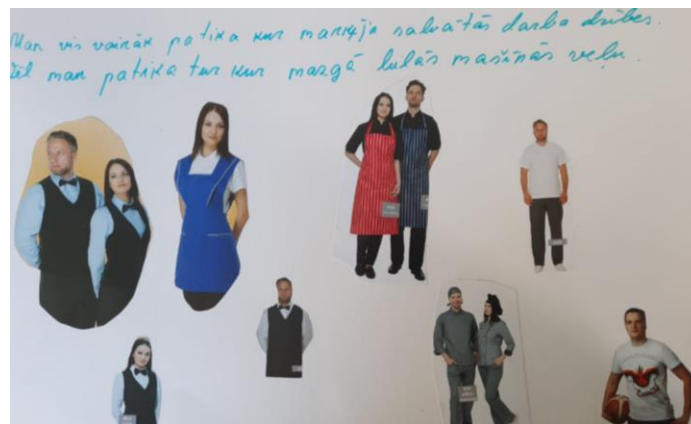 Man vis vairāk patika kur marķēja salvātās darba drēbes.
Vēl man patika tur kur mazgā lielās mašīnās veļu.